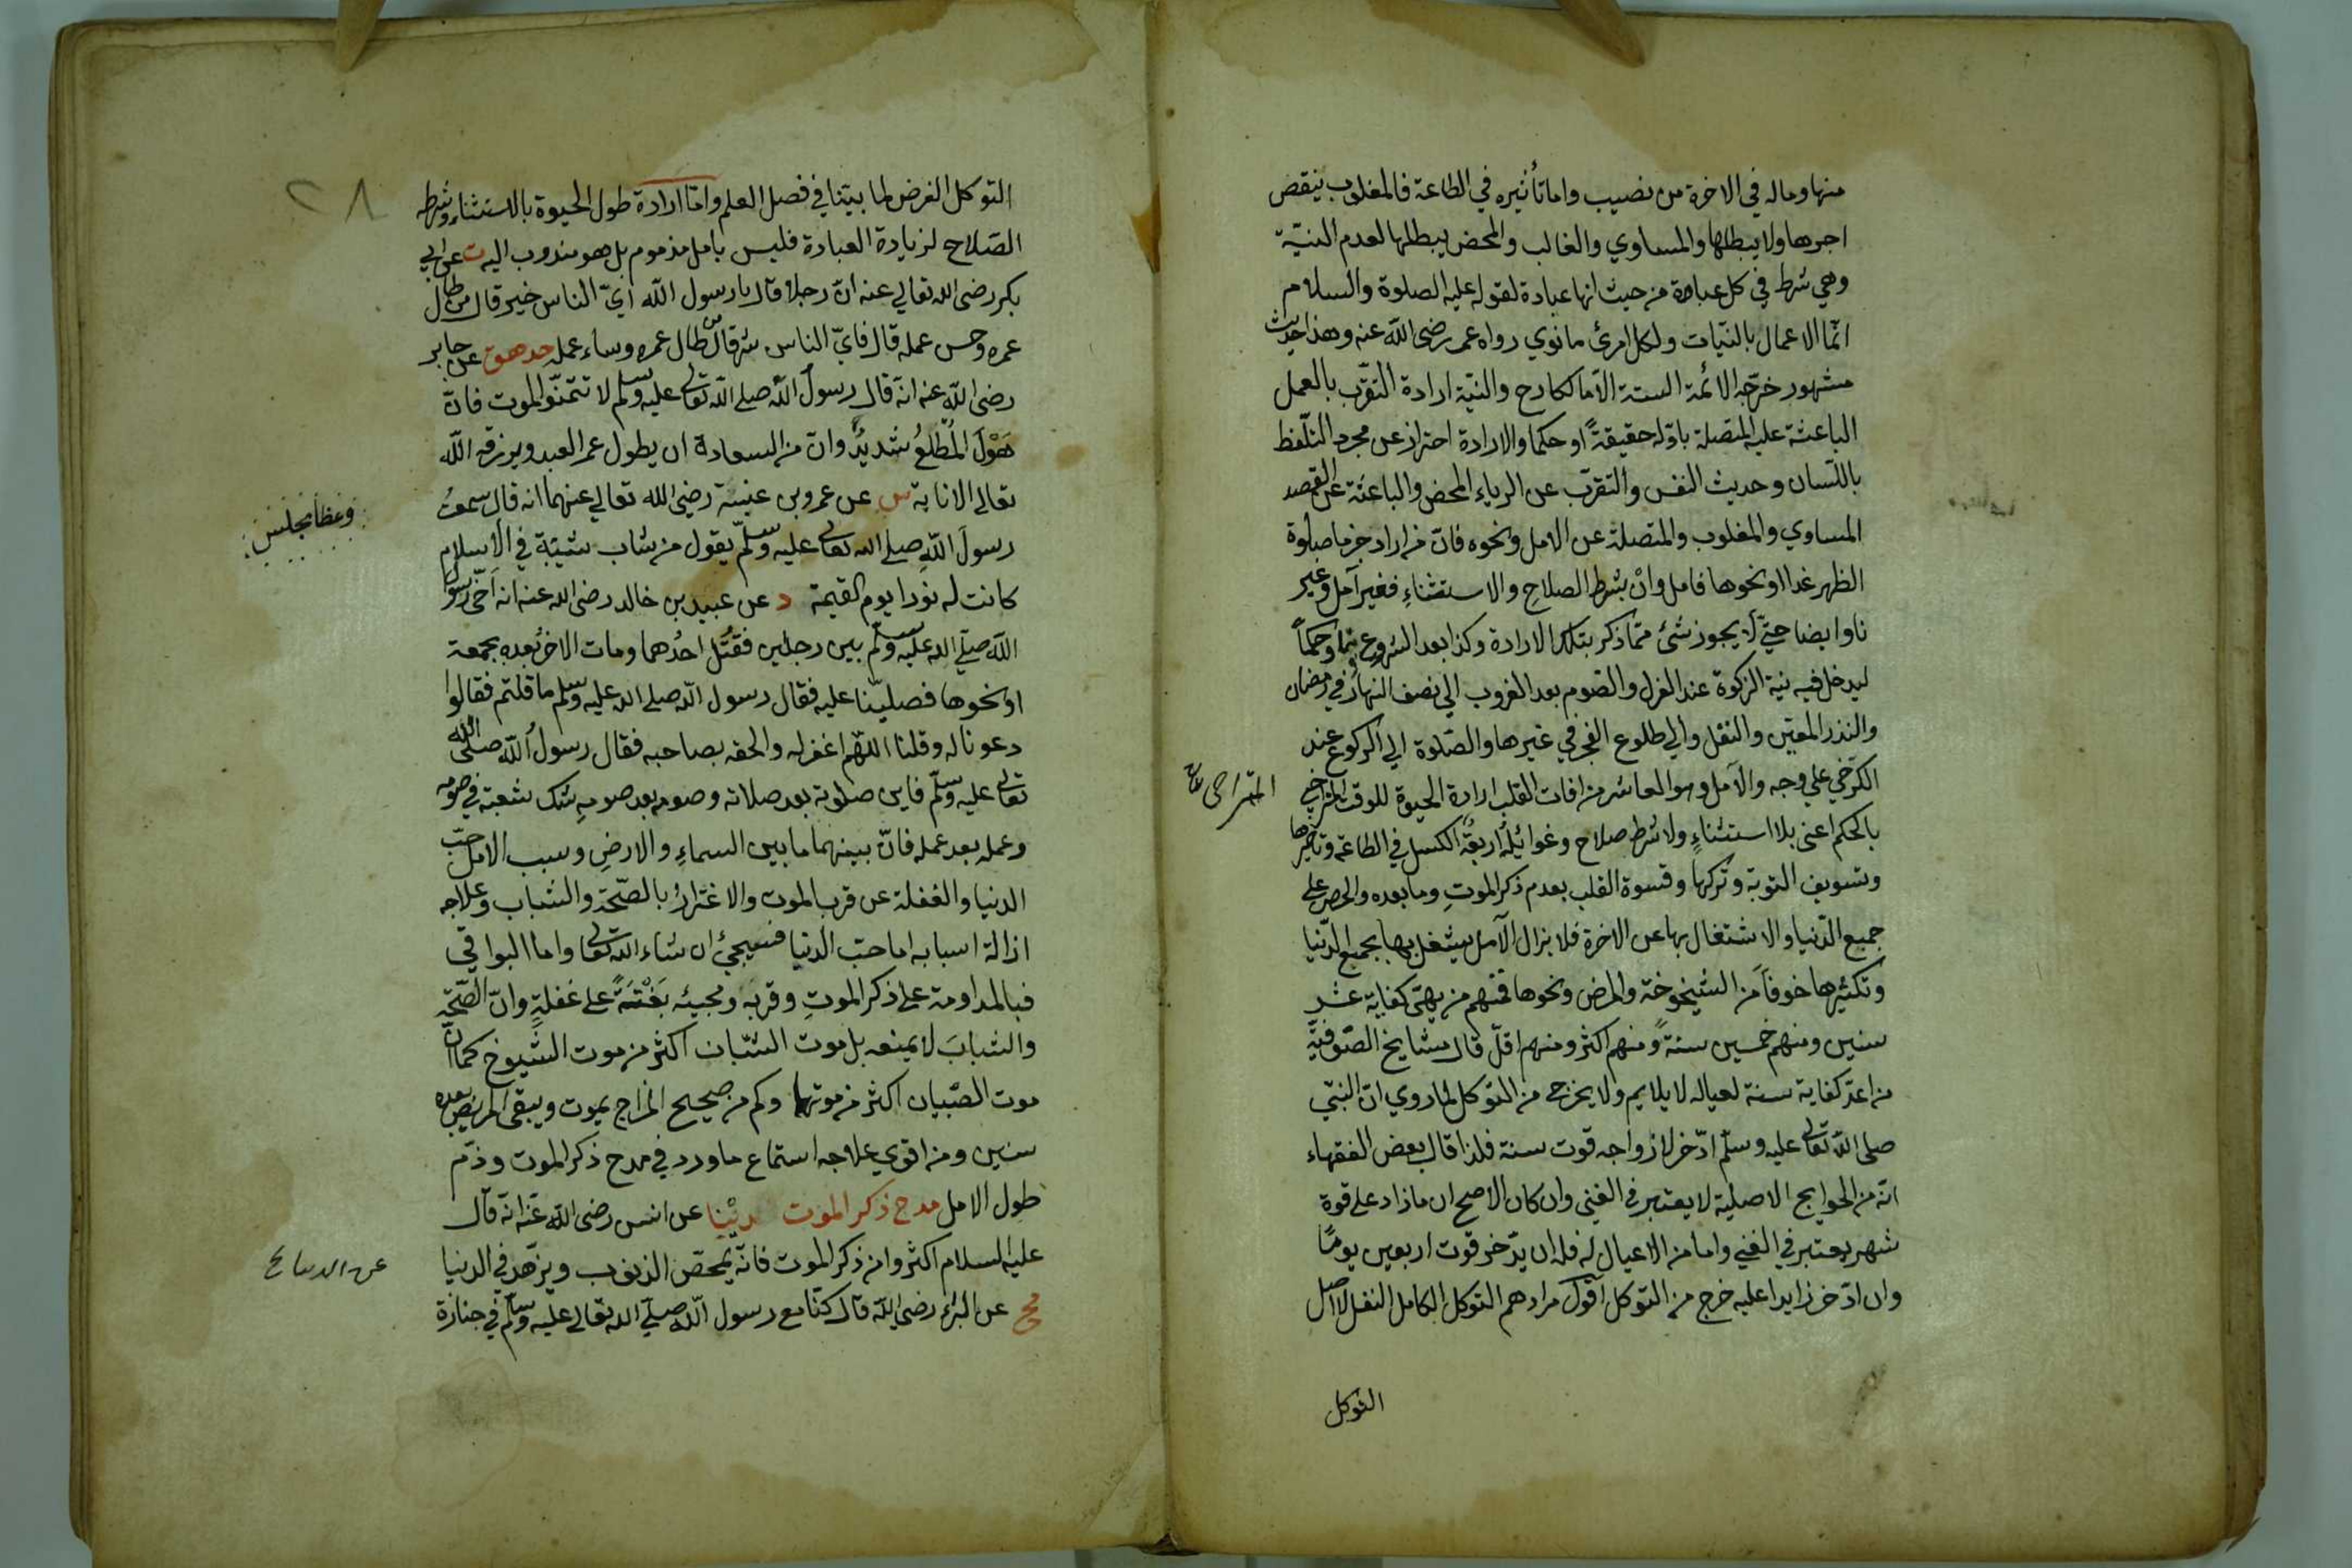 منها وماله في الاخرة من نصيب واما تأثيره في الطاعة فالمغلوب ينقص
اجرها ولا يبطلها والمساوي والغالب والمحض يبطلها لعدم النيّة
وهي شرط في كل عبادة من حيث انها عبادة لقوله عليه الصلوة والسلام
انّما الاعمال بالنيّات ولكل امرئ ما نوي رواه عمر رضى الله عنه وهذا حديث
مشهور خرّجه الائمة الستة الّا مالكا رح والنيّة ارادة التقرّب بالعمل
الباعثة عليه المتصلة باوّله حقيقةً او حكما والارادة احتراز عن مجرد التلّفظ
باللّسان وحديث النفس والتقرّب عن الرياء المحض والباعثة عن القصد
المساوي والمغلوب والمتصلة عن الامل ونحوه فانّ من اراد جزما صلوة
الظهر غدا او نحوها فامل وانْ بشرط الصلاحِ والاستثناءِ فغير آمل وغير
ناو ايضا حتّي لا يجوز شئ ممّا ذكر بتلك الارادة وكذا بعد الشروع وحكماً
ليدخل فيه نية الزكوة عند العزل والصوم بعد الغروب الي نصف النهار في رمضان
والنذر المعيّن والنفل والي طلوع الفجر في غيرها والصّلوة الي الركوع عند
الكرخي علي وجه والآمل وهو العاشر من افات القلب ارادة الحيوة للوقت المتراخي
المتراخى
بالحكم اعنى بلا استثناءٍ ولا شرط صلاح وغوائله اربعة الكسل في الطاعة وتأخيرها
وتسويف التوبة وتركها وقسوة القلب بعدم ذكر الموتِ وما بعده والحرص علي
جميع الدّنيا والاشتغال بها عن الاخرة فلا يزال الآمل يشغل بها بجميع الدّنيا
وتكثيرها خوفاً من الشيخوخة والمرض ونحوها فمنهم من يهتى كفاية عشر
سنين ومنهم خمسين سنةً ومنهم اكثر ومنهم اقلّ قال مشايخ الصّوفيّة
من اعدّ كفاية سنة لعياله لا يلايم ولا يخرج من التوكل لما روي انّ النبّي
صلى الله تعالى عليه وسلّم ادّخر لازواجه قوت سنة فلذا قال بعض الفقهاء
انّه من الحوايج الاصلية لا يعتبر في الغني وان كان الاصح ان ما زاد على قوة
شهر يعتبر في الغني واما من لا عيال له فله ان يدّخر قوت اربعين يومًا
وان ادّخر زايدا عليه خرج من التوكل اقول مرادهم التوكل الكامل النفل لا اصل
التوكل
٢٨
التوكل الفرض لما بيّنا في فصل العلم وامّا ارادة طول الحيوة بالاستثناء وشرط
الصّلاح لزيادة العبادة فليس بامل مذموم بل هو مندوب اليه ت عن ابي
بكر رضى الله تعالي عنه انّ رجلا قال يا رسول الله ايّ الناس خير قال من طال
عمره وحسن عمله قال فايّ الناس شر قال من طال عمره وساء عمله حد هق عن جابر
رضى الله عنه انّه قال رسول الله صلى الله تعالى عليه وسلم لا تتمنّوا الموت فانّ
هَوْلَ المُطّلع شديدٌ وانّ من السعادة ان يطول عمر العبد ويرزقه الله
تعالى الانابة س عن عمرو بن عنبسة رضى الله تعالي عنهما انه قال سمعتُ
رسولَ اللهِ صلى الله تعالى عليه وسلّم يقول من شاب شيْبة في الاسلام
كانت له نورا يوم القيمة د عن عبيد بن خالد رضى الله عنه انه آخى رسول
الله صلّي الله عليه وسلّم بين رجلين فقُتل احدُهما ومات الاخرُ بعده بجمعة
او نحوها فصليّنا عليه فقال رسول الله صلى الله عليه وسلم ما قلتم فقالوا
دعونا له وقلنا اللهّم اغفر له والحقه بصاحبه فقال رسولُ الله صلّى الله
تعالى عليه وسلّم فاين صلوته بعد صلاته وصومه بعد صومهِ شك شعبة في صومه
وعمله بعد عمله فانّ بينهما ما بين السماءِ والارضِ وسبب الامل حبّ
الدنيا والغفلة عن قرب الموت والاغترارُ بالصّحّة والشباب وعلاجه
ازالة اسبابه اما حبّ الدنيا فسيجئ ان شاء الله تعالى واما البواقي
فبالمداومة على ذكر الموتِ وقربه ومجيئه بَغْتَةً على غفلةٍ وانّ الصّحّة
والشبابَ لا يمنعه بل موت الشبّان اكثر من موت الشّيوخ كما انّ
موت الصّبيان اكثر من موتها وكم من صحيح المزاج يموت ويبقى المريض بعده
سنين ومن اقوي علاجه استماع ما ورد في مدح ذكر الموت وذمّ
طول الامل مدح ذكر الموت دنيا عن انس رضى الله عنه انّه قال
عليه السلام اكثروا من ذكر الموت فانّه يمحّص الذنوب ويزهّد في الدنيا
مج عن البراء رضى الله قال كنّا مع رسول الله صلّي الله تعالى عليه وسلّم في جنازة